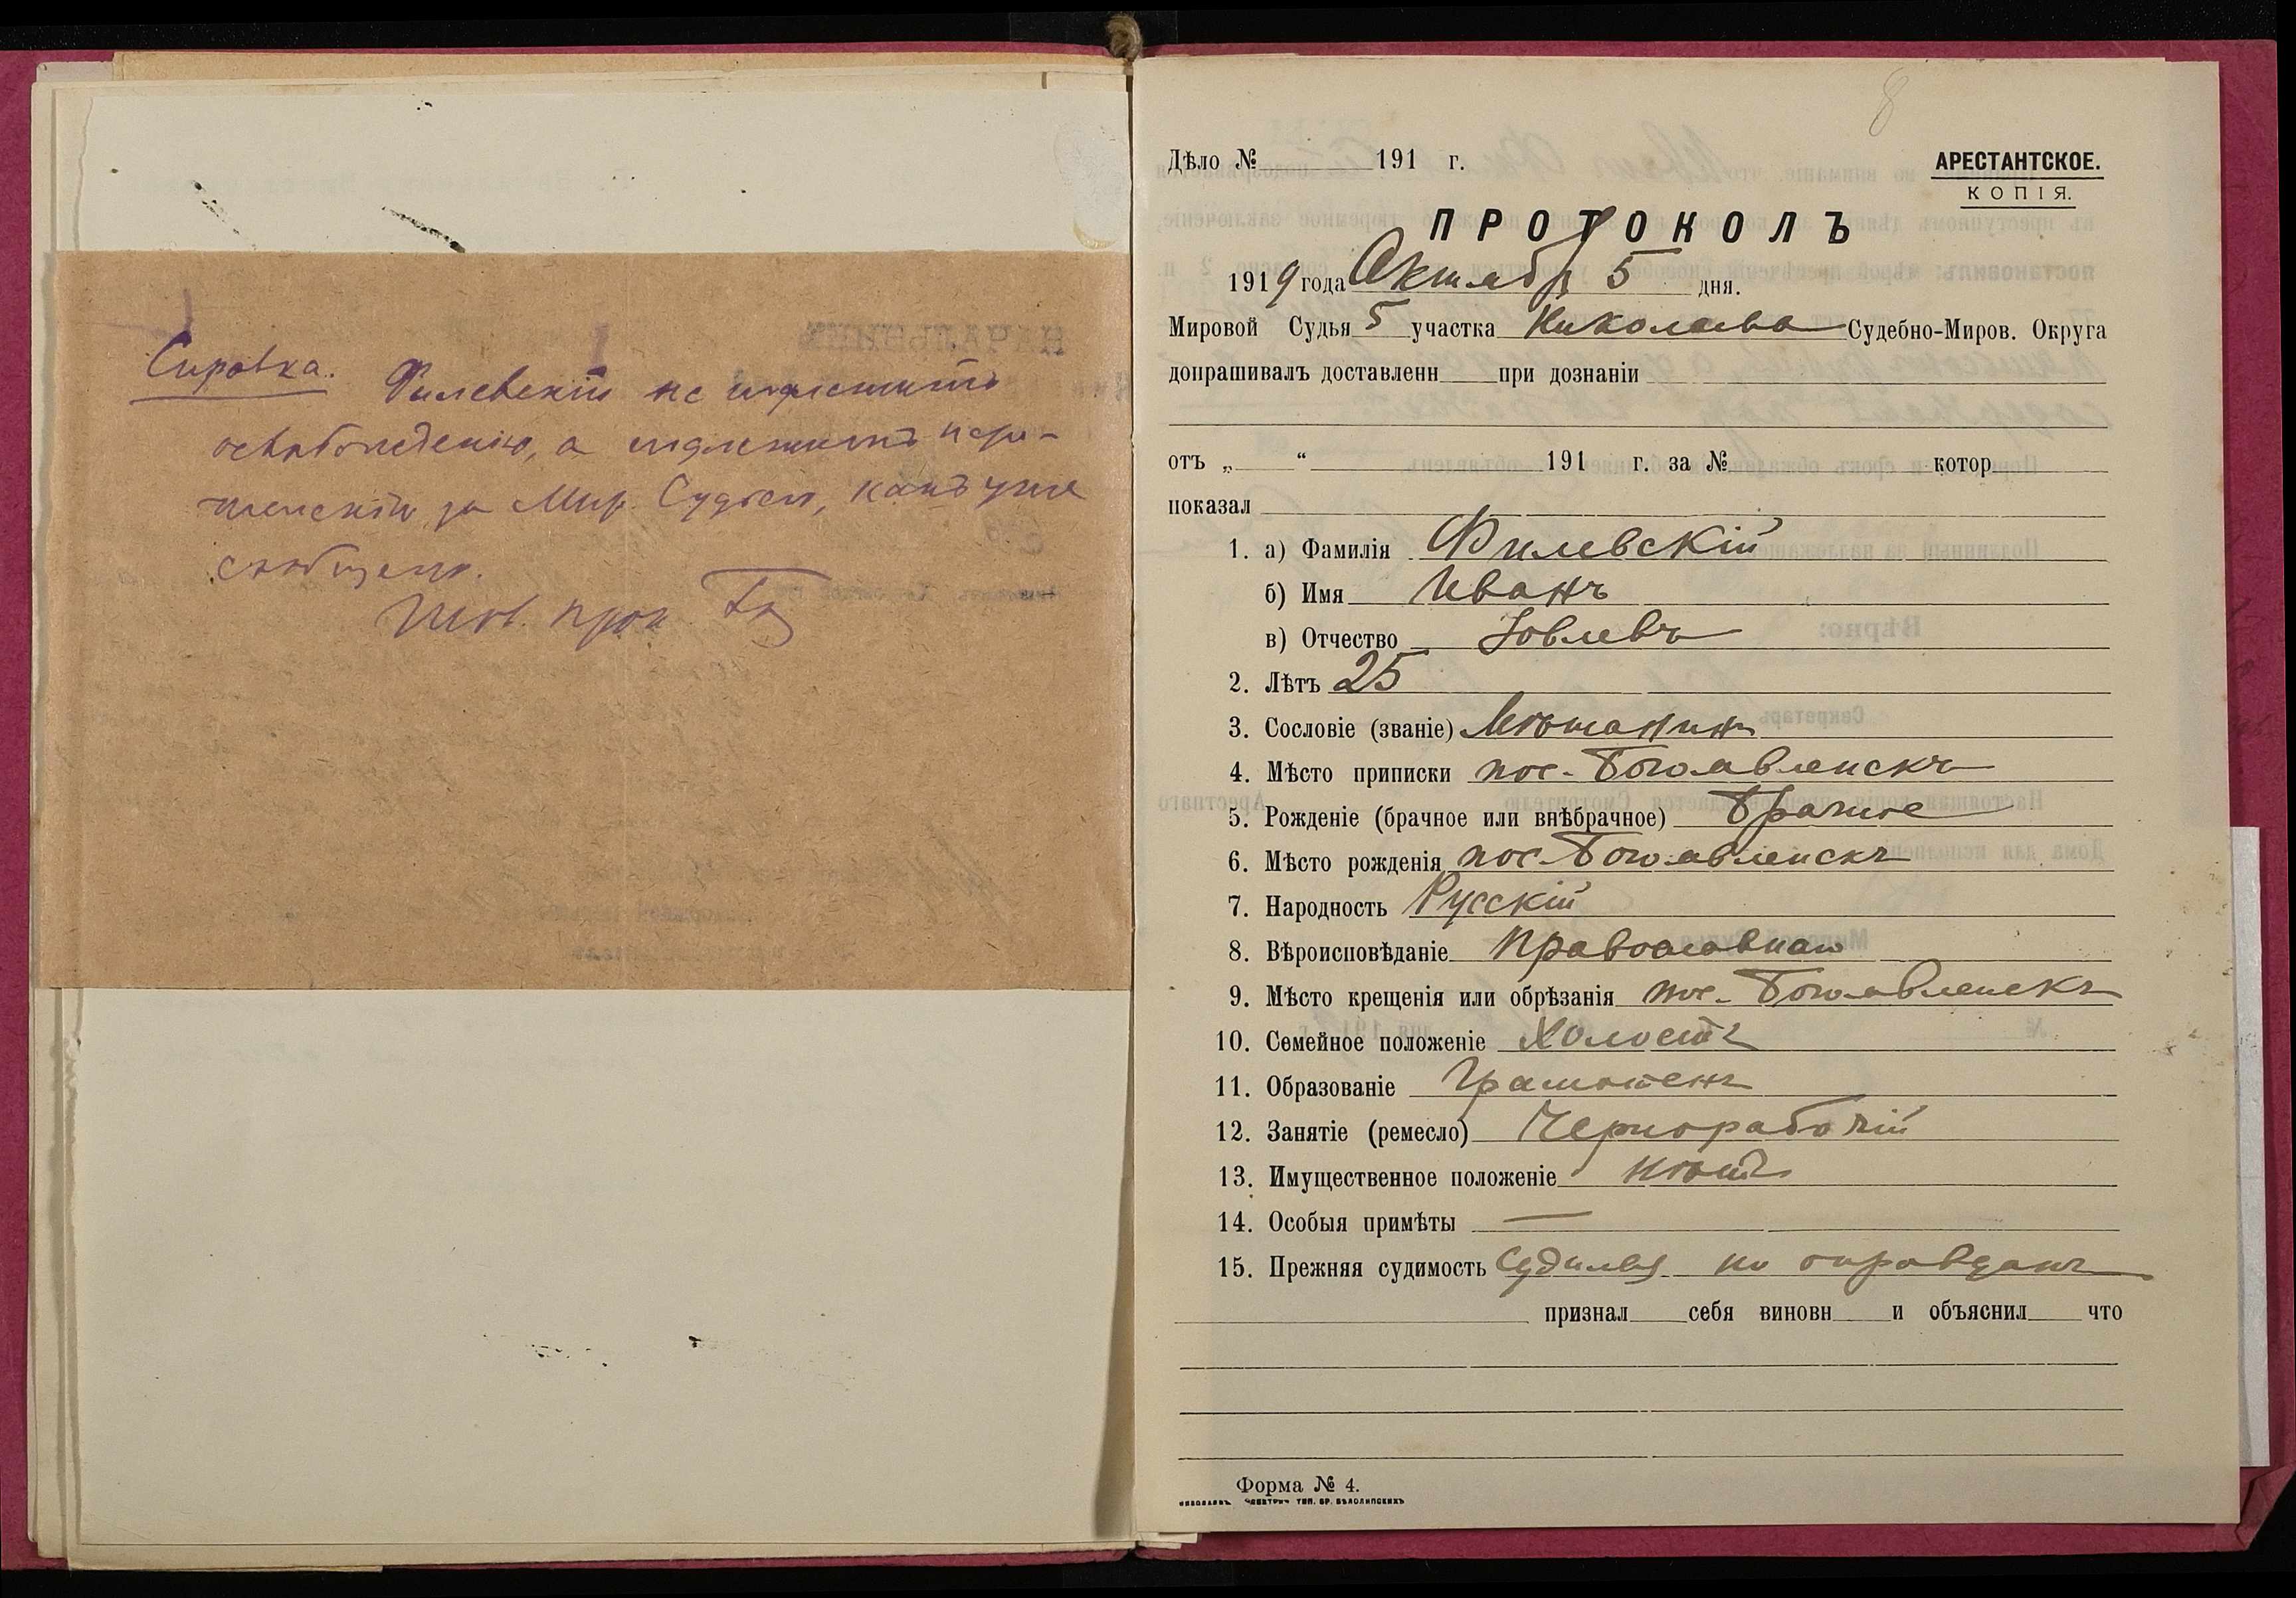 Справка. Филевскій не подлежитъ
освобожденію, а подлежитъ пере-
численію за Мир. Судьею, какъ уже
сообщено.
Тов. прок.
8
Дѣло № 191 г.
АРЕСТАНТСКОЕ.
КОПІЯ.
ПРОТОКОЛЪ
1919 года Октябр 5 дня.
Мировой Судья 5 участка Николаева Судебно-Миров. Округа
допрашивалъ доставленн при дознаніи
отъ „ “ 191 г. за № котор
показал
1. а) Фамилія Филевскій
б) Имя Иванъ
в) Отчество Іовлевъ
2. Лѣтъ 25
3. Сословіе (званіе) Мѣщанинъ
4. Мѣсто приписки пос. Богоявленскъ
5. Рожденіе (брачное или внѣбрачное) Брачное
6. Мѣсто рожденія пос. Богоявленскъ
7. Народность Русскій
8. Вѣроисповѣданіе Православнаго
9. Мѣсто крещенія или обрѣзанія пос. Богоявленскъ
10. Семейное положеніе Холостъ
11. Образованіе Грамотенъ
12. Занятіе (ремесло) Чернорабочій
13. Имущественное положеніе Нѣтъ
14. Особыя примѣты —
15. Прежняя судимость Судился но оправданъ
признал себя виновн и объяснил что
Форма № 4.
НИКОЛАЕВЪ ЭЛЕКТРИЧ ТИП. БР. БѢЛОЛИПСКИХЪ